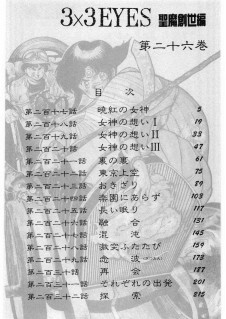 3×3 EYES 聖魔創世編
第二十六巻
目次
第二百十七話 暁紅の女神 5
第二百十八話 女神の想いⅠ 19
第二百十九話 女神の想いⅡ 33
第二百二十話 女神の想いⅢ 47
第二百二十一話 裏の裏 61
第二百二十二話 東京上空 75
第二百二十三話 おきざり 89
第二百二十四話 楽園にあらず 103
第二百二十五話 長い眠り 117
第二百二十六話 融合 131
第二百二十七話 混沌 145
第二百二十八話 激突ふたたび 159
第二百二十九話 念波 173
第二百三十話 再会 187
第二百三十一話 それぞれの出発 201
第二百三十二話 探索 215